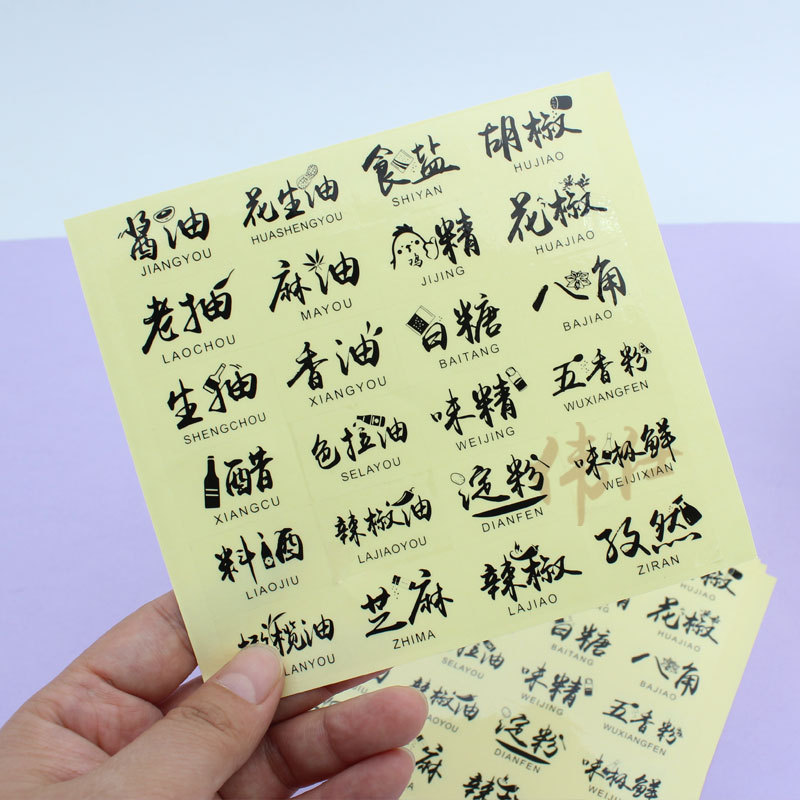 酱油
JIANGYOU
花生油
HUASHENGYOU
食盐
SHIYAN
胡椒
HUJIAO
老抽
LAOCHOU
麻油
MAYOU
鸡精
JIJING
花椒
HUAJIAO
生抽
SHENGCHOU
香油
XIANGYOU
白糖
BAITANG
八角
BAJIAO
醋
XIANGCU
色拉油
SELAYOU
味精
WEIJING
五香粉
WUXIANGFEN
料酒
LIAOJIU
辣椒油
LAJIAOYOU
淀粉
DIANFEN
味极鲜
WEIJIXIAN
榄油
LANYOU
芝麻
ZHIMA
辣椒
LAJIAO
孜然
ZIRAN
椒
HUJIAO
白糖
BAITANG
花椒
HUAJIAO
拉油
SELAYOU
味精
WEIJING
八角
BAJIAO
辣椒油
AOYOU
淀粉
DIANFEN
五香粉
WUXIANGFEN
麻
辣
味极鲜
WEIJIXIAN